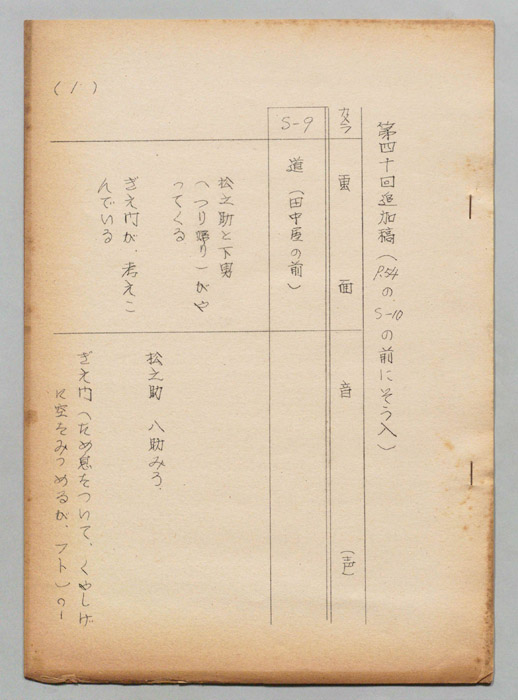 第四十回追加稿(P.54のS-10の前にそう入)
カメラ
画面
音
(声)
S-9
道(田中屋の前)
松之助と下男
(つり帰り)がや
ってくる
ぎえ門が、考えこ
んでいる
松之助 八助みろ、
ぎえ門(ため息をついて、くやしげ
に空をみつめるが、フト)のー
(1)